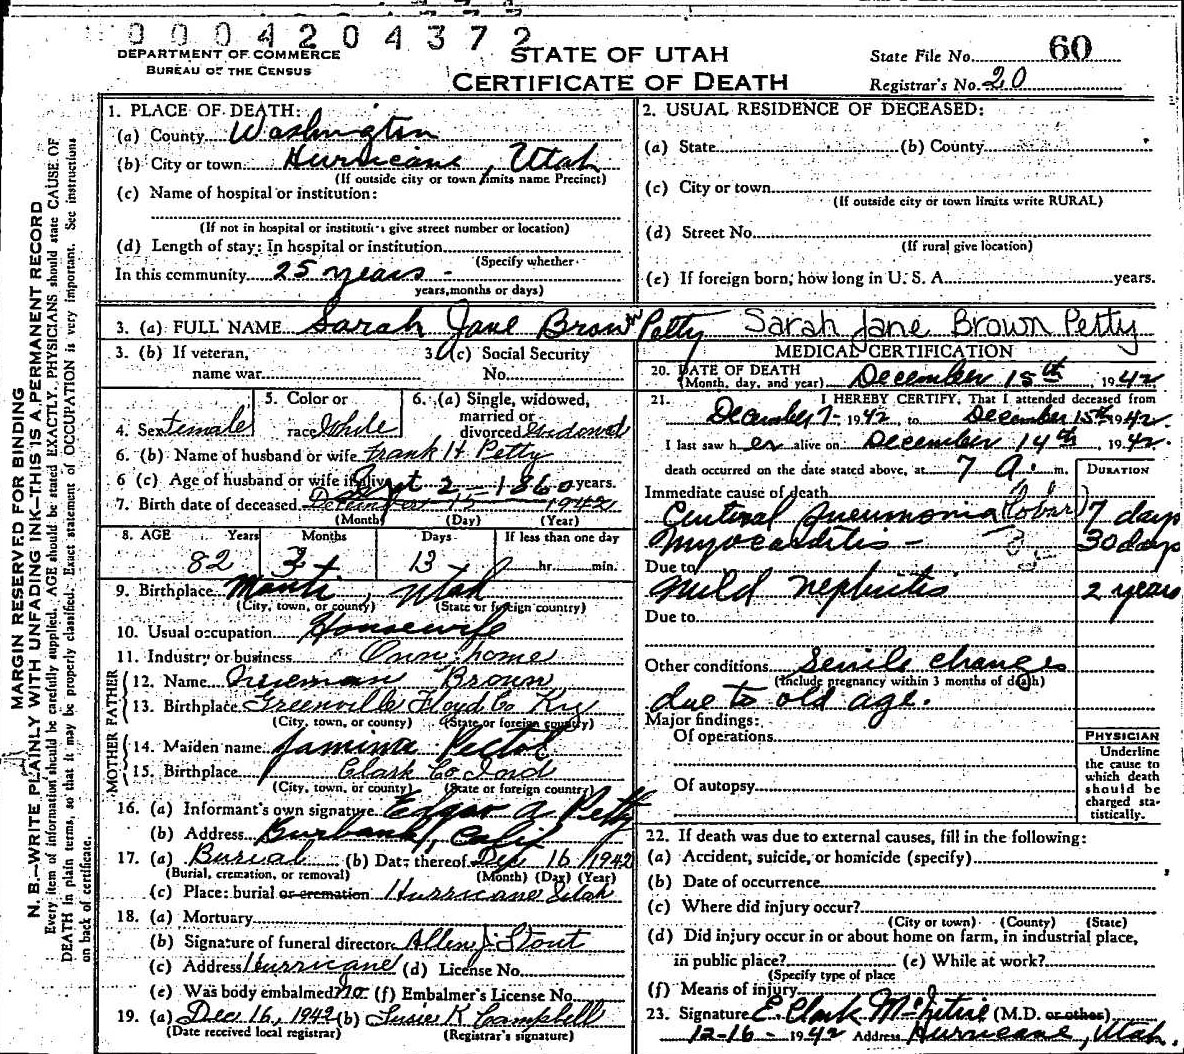 0004204372
DEPARTMENT OF COMMERCE
BUREAU OF THE CENSUS
STATE OF UTAH
CERTIFICATE OF DEATH
State File No. 60
Registrar's No. 20
MARGIN RESERVED FOR BINDING
N. B.—WRITE PLAINLY WITH UNFADING INK—THIS IS A PERMANENT RECORD
Every item of information should be carefully supplied. AGE should be stated EXACTLY. PHYSICIANS should state CAUSE OF
DEATH in plain terms, so that it may be properly classified. Exact statement of OCCUPATION is very important. See instructions
on back of certificate.
1. PLACE OF DEATH:
(a) County Washington
(b) City or town Hurricane, Utah
(If outside city or town limits name Precinct)
(c) Name of hospital or institution:
(If not in hospital or institution give street number or location)
(d) Length of stay: In hospital or institution
(Specify whether
In this community 25 years -
years, months or days)
2. USUAL RESIDENCE OF DECEASED:
(a) State (b) County
(c) City or town
(If outside city or town limits write RURAL)
(d) Street No.
(If rural give location)
(e) If foreign born, how long in U. S. A. years.
3. (a) FULL NAME Sarah Jane Brown Petty Sarah Jane Brown Petty
3. (b) If veteran,
name war
3. (c) Social Security
No.
4. Sex Female
5. Color or
race White
6. (a) Single, widowed,
married or
divorced Widowed
6. (b) Name of husband or wife Frank H Petty
6 (c) Age of husband or wife if alive years.
Sept 2 - 1860
7. Birth date of deceased December 15 1942
(Month) (Day) (Year)
8. AGE Years Months Days If less than one day
82 3 13 hr. min.
9. Birthplace Manti, Utah
(City, town, or county) (State or foreign country)
10. Usual occupation Housewife
11. Industry or business Own home
FATHER
12. Name Newman Brown
13. Birthplace Greenville Floyd Co Ky
(City, town, or county) (State or foreign country)
MOTHER
14. Maiden name Jamima Pectol
15. Birthplace Clark Co Ind
(City, town, or county) (State or foreign country)
16. (a) Informant's own signature Edgar A Petty
(b) Address Burbank, Calif
17. (a) Burial (b) Date thereof Dec 16 1942
(Burial, cremation, or removal) (Month) (Day) (Year)
(c) Place: burial or cremation Hurricane Utah
18. (a) Mortuary
(b) Signature of funeral director Allen J. Stout
(c) Address Hurricane (d) License No.
(e) Was body embalmed no (f) Embalmer's License No.
19. (a) Dec 16, 1942 (b) Susie K Campbell
(Date received local registrar) (Registrar's signature)
MEDICAL CERTIFICATION
20. DATE OF DEATH
(Month, day, and year) December 15th, 1942
21. I HEREBY CERTIFY, That I attended deceased from
December 7- 1942, to December 15th 1942
I last saw her alive on December 14th, 1942.
death occurred on the date stated above, at 7 A. m.
DURATION
Immediate cause of death
Central pneumonia (lobar) 7 days
Myocarditis - 30 days
Due to
Mild nephritis 2 years
Due to
Other conditions Senile changes
(Include pregnancy within 3 months of death)
due to old age.
Major findings:
Of operations
Of autopsy
PHYSICIAN
Underline
the cause to
which death
should be
charged sta-
tistically.
22. If death was due to external causes, fill in the following:
(a) Accident, suicide, or homicide (specify)
(b) Date of occurrence
(c) Where did injury occur?
(City or town) (County) (State)
(d) Did injury occur in or about home on farm, in industrial place,
in public place? (e) While at work?
(Specify type of place
(f) Means of injury
23. Signature E. Clark McIntire (M.D. or other)
12-16- 1942 Address Hurricane, Utah.